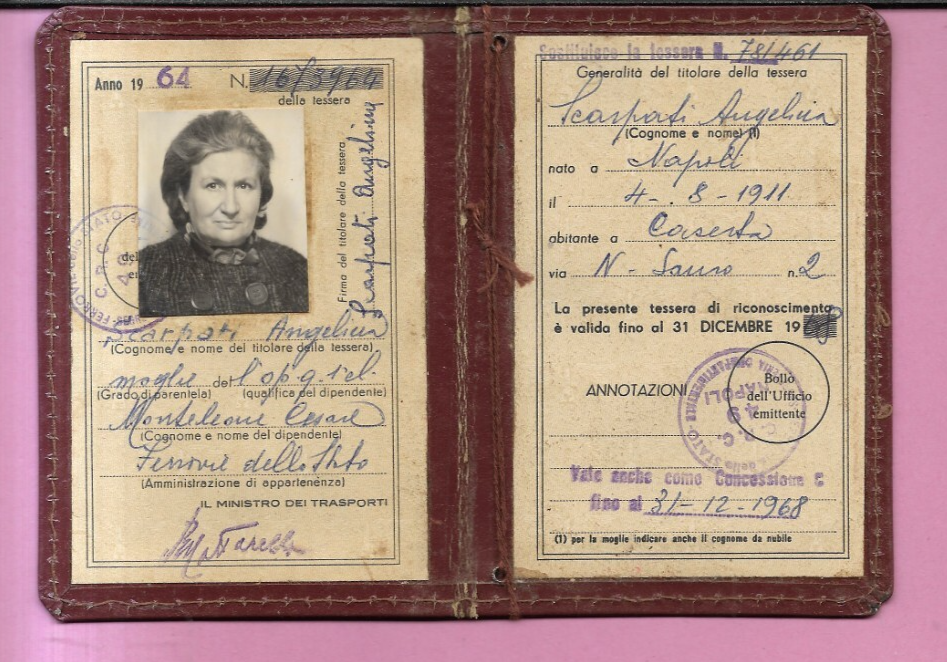 Anno 1964 N. 1673964
della tessera
Firma del titolare della tessera
Scarpati Angelina
Scarpati Angelina
(Cognome e nome del titolare della tessera)
moglie del l'op. q. i.el.
(Grado di parentela) (qualifica del dipendente)
Monteleone Cesare
(Cognome e nome del dipendente)
Ferrovie dello Stato
(Amministrazione di appartenenza)
IL MINISTRO DEI TRASPORTI
Mattarella
FERROVIE dello STATO
C. P. C.
49
Sostituisce la tessera N. 781461
Generalità del titolare della tessera
Scarpati Angelina
(Cognome e nome) (1)
nato a Napoli
il 4-8-1911
abitante a Caserta
via N. Sauro n. 2
La presente tessera di riconoscimento
è valida fino al 31 DICEMBRE 1968
ANNOTAZIONI
Bollo
dell'Ufficio
emittente
NAPOLI
49
C. P. C.
Vale anche come Concessione C
fino al 31-12-1968
(1) per la moglie indicare anche il cognome da nubile